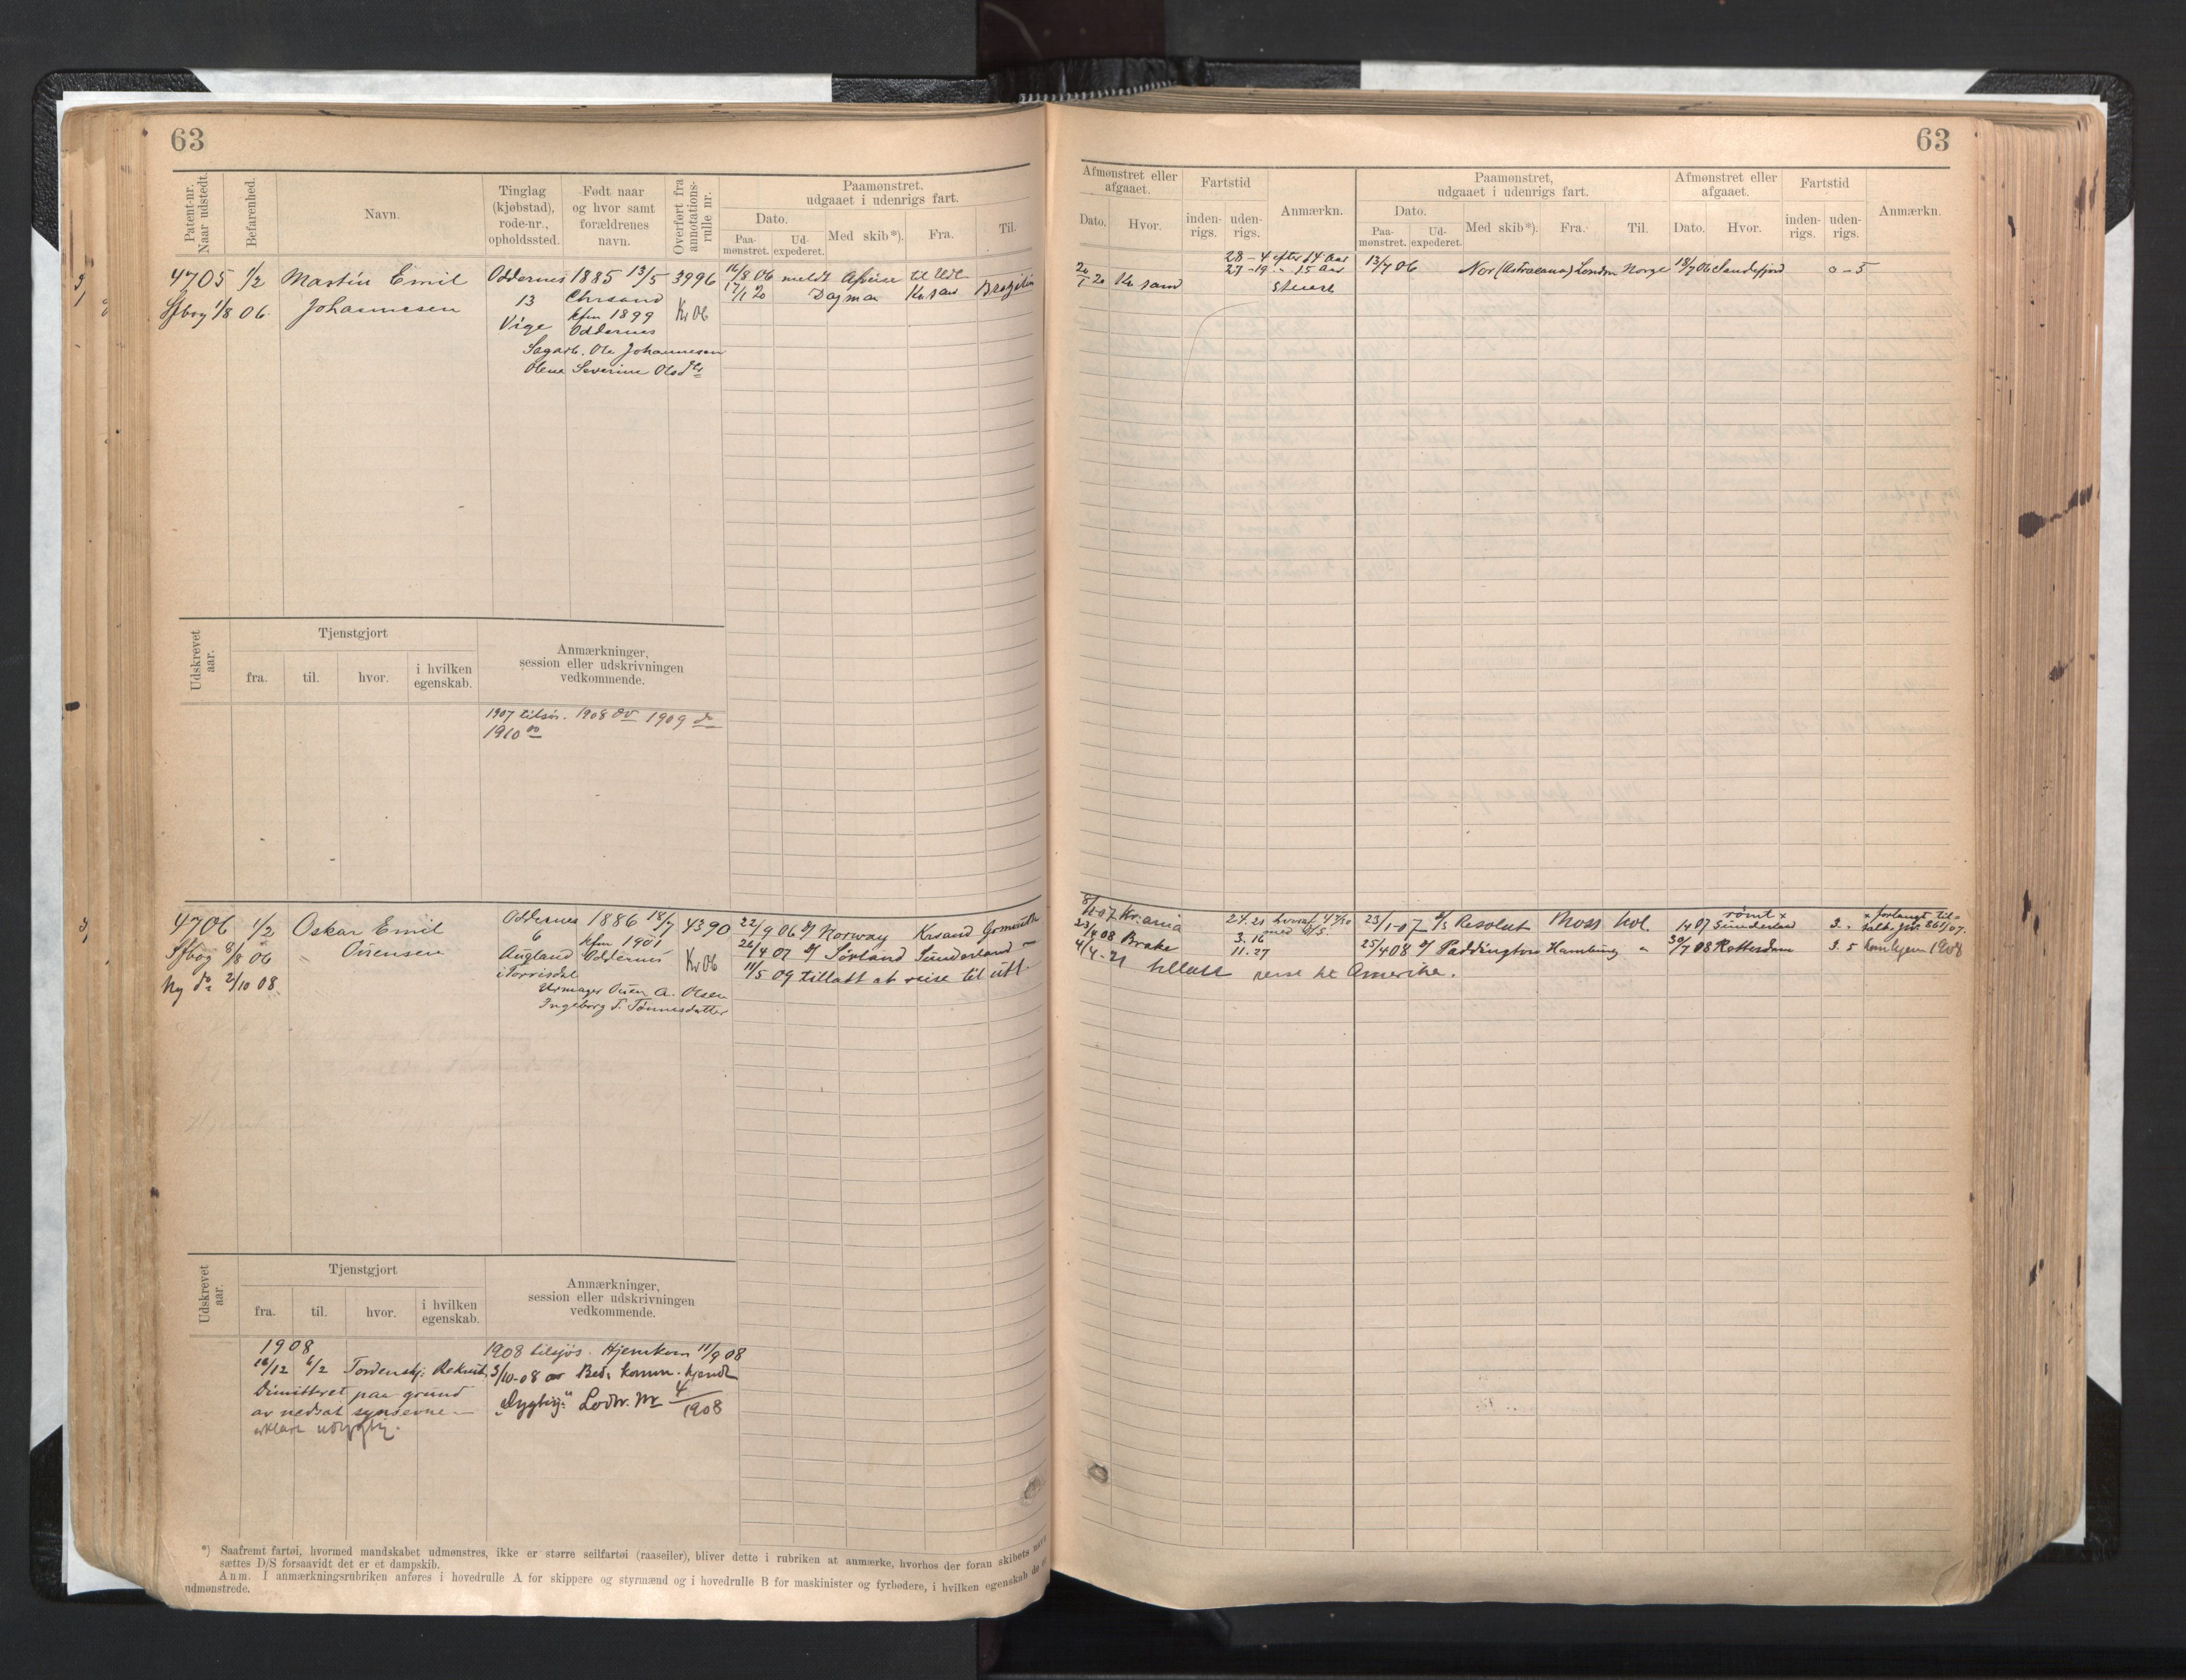 63
Patent-nr.
Naar udstedt.
Befarenhed.
Navn.
Tinglag
(kjøbstad),
rode-nr.,
opholdssted.
Født naar
og hvor samt
forældrenes
navn.
Overført fra
annotations-
rulle nr.
Paamønstret,
udgaaet i udenrigs fart.
Dato.
Paa-
mønstret.
Ud-
expederet.
Med skib*).
Fra.
Til.
4705 1/2 Martin Emil Oddernes 1885 13/5 3996 16/8 06 meldt Afreise til Udl.
Sfbog 1/8 06. Johannesen 13 Chrsand 17/1 20 Dagmar Kr.sand Brasilien
Vige kfm 1899 Kr 06
Oddernes
Sagarb. Ole Johannesen
Olene Severine Olsdtr
Udskrevet
aar.
Tjenstgjort
fra.
til.
hvor.
i hvilken
egenskab.
Anmærkninger,
session eller udskrivningen
vedkommende.
1907 tilsjøs. 1908 do 1909 do
1910 do
4706 1/2 Oskar Emil Oddernes 1886 18/7 4390 22/9 06 Norway Krsand
Sfbog 8/8 06 Ousensen 6 kfm 1901 26/4 07 Sørland Sunderland
Augland Oddernes Kr 06
Ny do 2/10 08 i Torrisdal 11/5 09 tillatt at reise til utl.
Urmager Ousen A. Olsen
Ingeborg T. Tønnesdatter
Udskrevet
aar.
Tjenstgjort
fra.
til.
hvor.
i hvilken
egenskab.
Anmærkninger,
session eller udskrivningen
vedkommende.
1908 1908 tilsjøs. Hjemkom 11/9 08
6/2 Tordenskj. Rekrut 3/10-08 av Bed. komm. kjendt
Dimitteret paa grund "Dygtig" Lodtr. Nr 4/1908
av nedsat synsevne
erklært udygtig.
*) Saafremt fartøi, hvormed mandskabet udmønstres, ikke er større seilfartøi (raaseiler), bliver dette i rubriken at anmærke, hvorhos der foran skibets navn
sættes D/S forsaavidt det er et dampskib.
Anm. I anmærkningsrubriken anføres i hovedrulle A for skippere og styrmænd og i hovedrulle B for maskinister og fyrbødere, i hvilken egenskab de er
udmønstrede.
63
Afmønstret eller
afgaaet.
Dato.
Hvor.
Fartstid
inden-
rigs.
uden-
rigs.
Anmærkn.
Paamønstret,
udgaaet i udenrigs fart.
Dato.
Paa-
mønstret.
Ud-
expederet.
Med skib*).
Fra.
Til.
Afmønstret eller
afgaaet.
Dato.
Hvor.
Fartstid
inden-
rigs.
uden-
rigs.
Anmærkn.
28-4 efter 14 Aar
Kr.sand 27-19 " 15 Aar 13/7 06 Nor (Astraeana) London Norge 18/7 06 Sandefjord 0-5
Stuert
8/1-07 Kr.ania 24.21 hvoraf 23/1-07 Resolut Moss Hol. rømt x x forlangt til-
3.16 med D/S 1/4 07 Sunderland 3.-
23/4 08 Brake 11.27 25/4 08 Paddington Hamburg " 30/7 08 Rotterdam 3.5 1908
4/4-21 tillatt reise til Amerika.